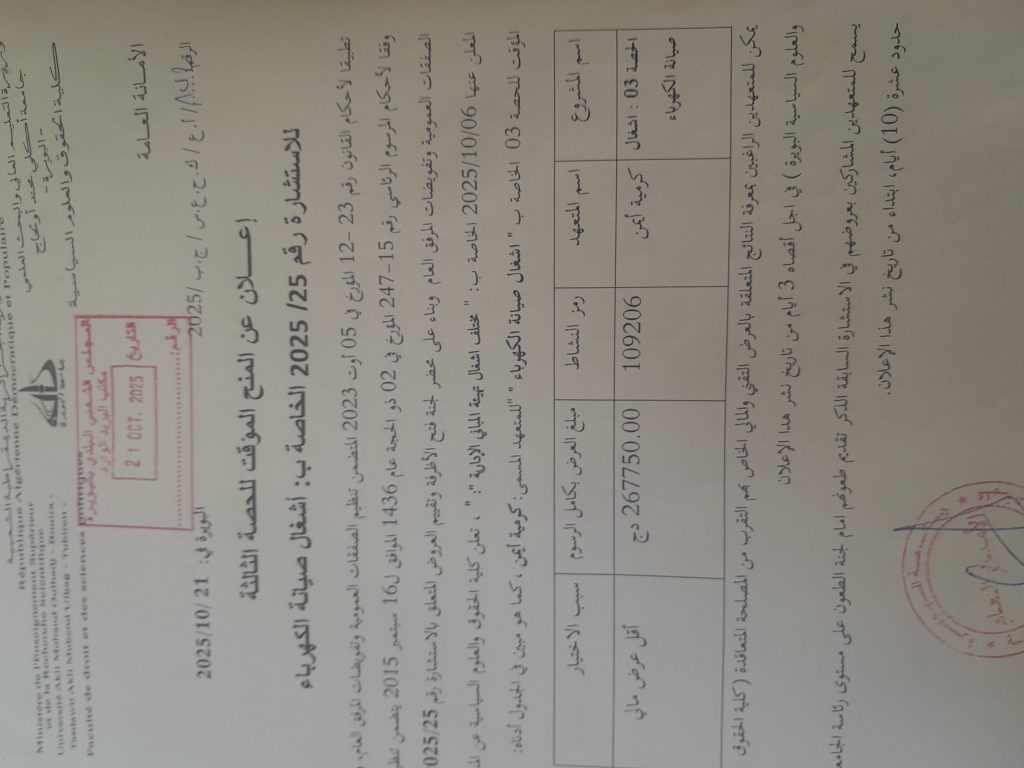 République Algérienne Démocratique et Populaire
Ministère de l'Enseignement Supérieur
et de la Recherche Scientifique
Université Akli Mohand Oulhadj - Bouira -
Tasdawit Akli Muḥend Ulḥaǧ - Tubirett -
Faculté de droit et des sciences politiques
جامعة أكلي محند أولحاج
- البويرة -
كلية الحقوق والعلوم السياسية
الأمانة العامة
المجلس الشعبي البلدي بالبويرة
مكتب البريد الوارد
التاريخ
21 OCT. 2025
الرقم:
/أ.ع/ك.ح.ع.س/ج.ب/2025
البويرة في: 2025/10/21
إعـــلان عن المنح الموقت للحصة الثالثة
للاستشارة رقم 25/ 2025 الخاصة ب: أشغال صيانة الكهرباء
تطبيقا لأحكام القانون رقم 23 -12 المؤرخ في 05 أوت 2023 المتضمن تنظيم الصفقات العمومية وتفويضات المرفق العام،
وفقا لأحكام المرسوم الرئاسي رقم 15-247 المؤرخ في 02 ذو الحجة عام 1436 الموافق ل16 سبتمبر 2015 يتضمن
الصفقات العمومية وتفويضات المرفق العام وبناء على محضر لجنة فتح الأظرفة وتقييم العروض المتعلق بالاستشارة رقم 025/25
المعلن عنها 2025/10/06 الخاصة ب: " مختلف اشغال تهيئة المباني الإدارية ": ، تعلن كلية الحقوق والعلوم السياسية عن
المؤقت للحصة 03 الخاصة ب " اشغال صيانة الكهرباء "للمتعهد المسمى: كرمية أيمن ، كما هو مبين في الجدول أدناه:
اسم المشروع اسم المتعهد رمز النشاط مبلغ العرض بكامل الرسوم سبب الاختيار
الحصة 03 : اشغال صيانة الكهرباء كرمية أيمن 109206 267750.00 دج أقل عرض مالي
يمكن للمتعهدين الراغبين بمعرفة النتائج المتعلقة بالعرض التقني والمالي الخاص بهم التقرب من المصلحة المتعاقدة ( كلية الحقوق
والعلوم السياسية البويرة ) في اجل أقصاه 3 أيام من تاريخ نشر هذا الإعلان
يسمح للمتعهدين المشاركين بعروضهم في الاستشارة السابقة الذكر تقديم طعونهم امام لجنة الطعون على مستوى رئاسة
حدود عشرة (10) أيام، ابتداء من تاريخ نشر هذا الإعلان.